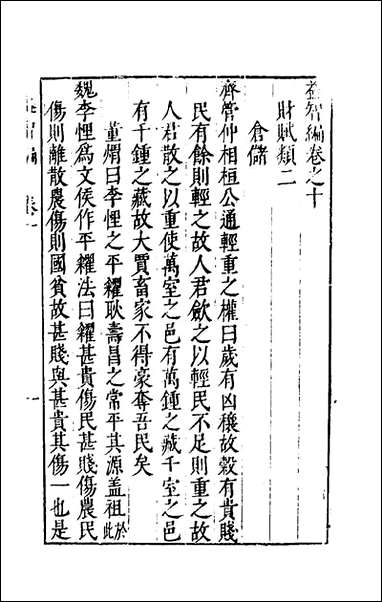 益智編卷之十
財賦類二
倉儲
齊管仲相桓公通輕重之權曰歲有凶穰故穀有貴賤
民有餘則輕之故人君歛之以輕民不足則重之故
人君散之以重使萬室之邑有萬鍾之藏千室之邑
有千鍾之藏故大賈畜家不得豪奪吾民矣
董煟曰李悝之平糴耿壽昌之常平其源盖祖於此
魏李悝爲文侯作平糴法曰糴甚貴傷民甚賤傷農民
傷則離散農傷則國貧故甚賤與甚貴其傷一也是